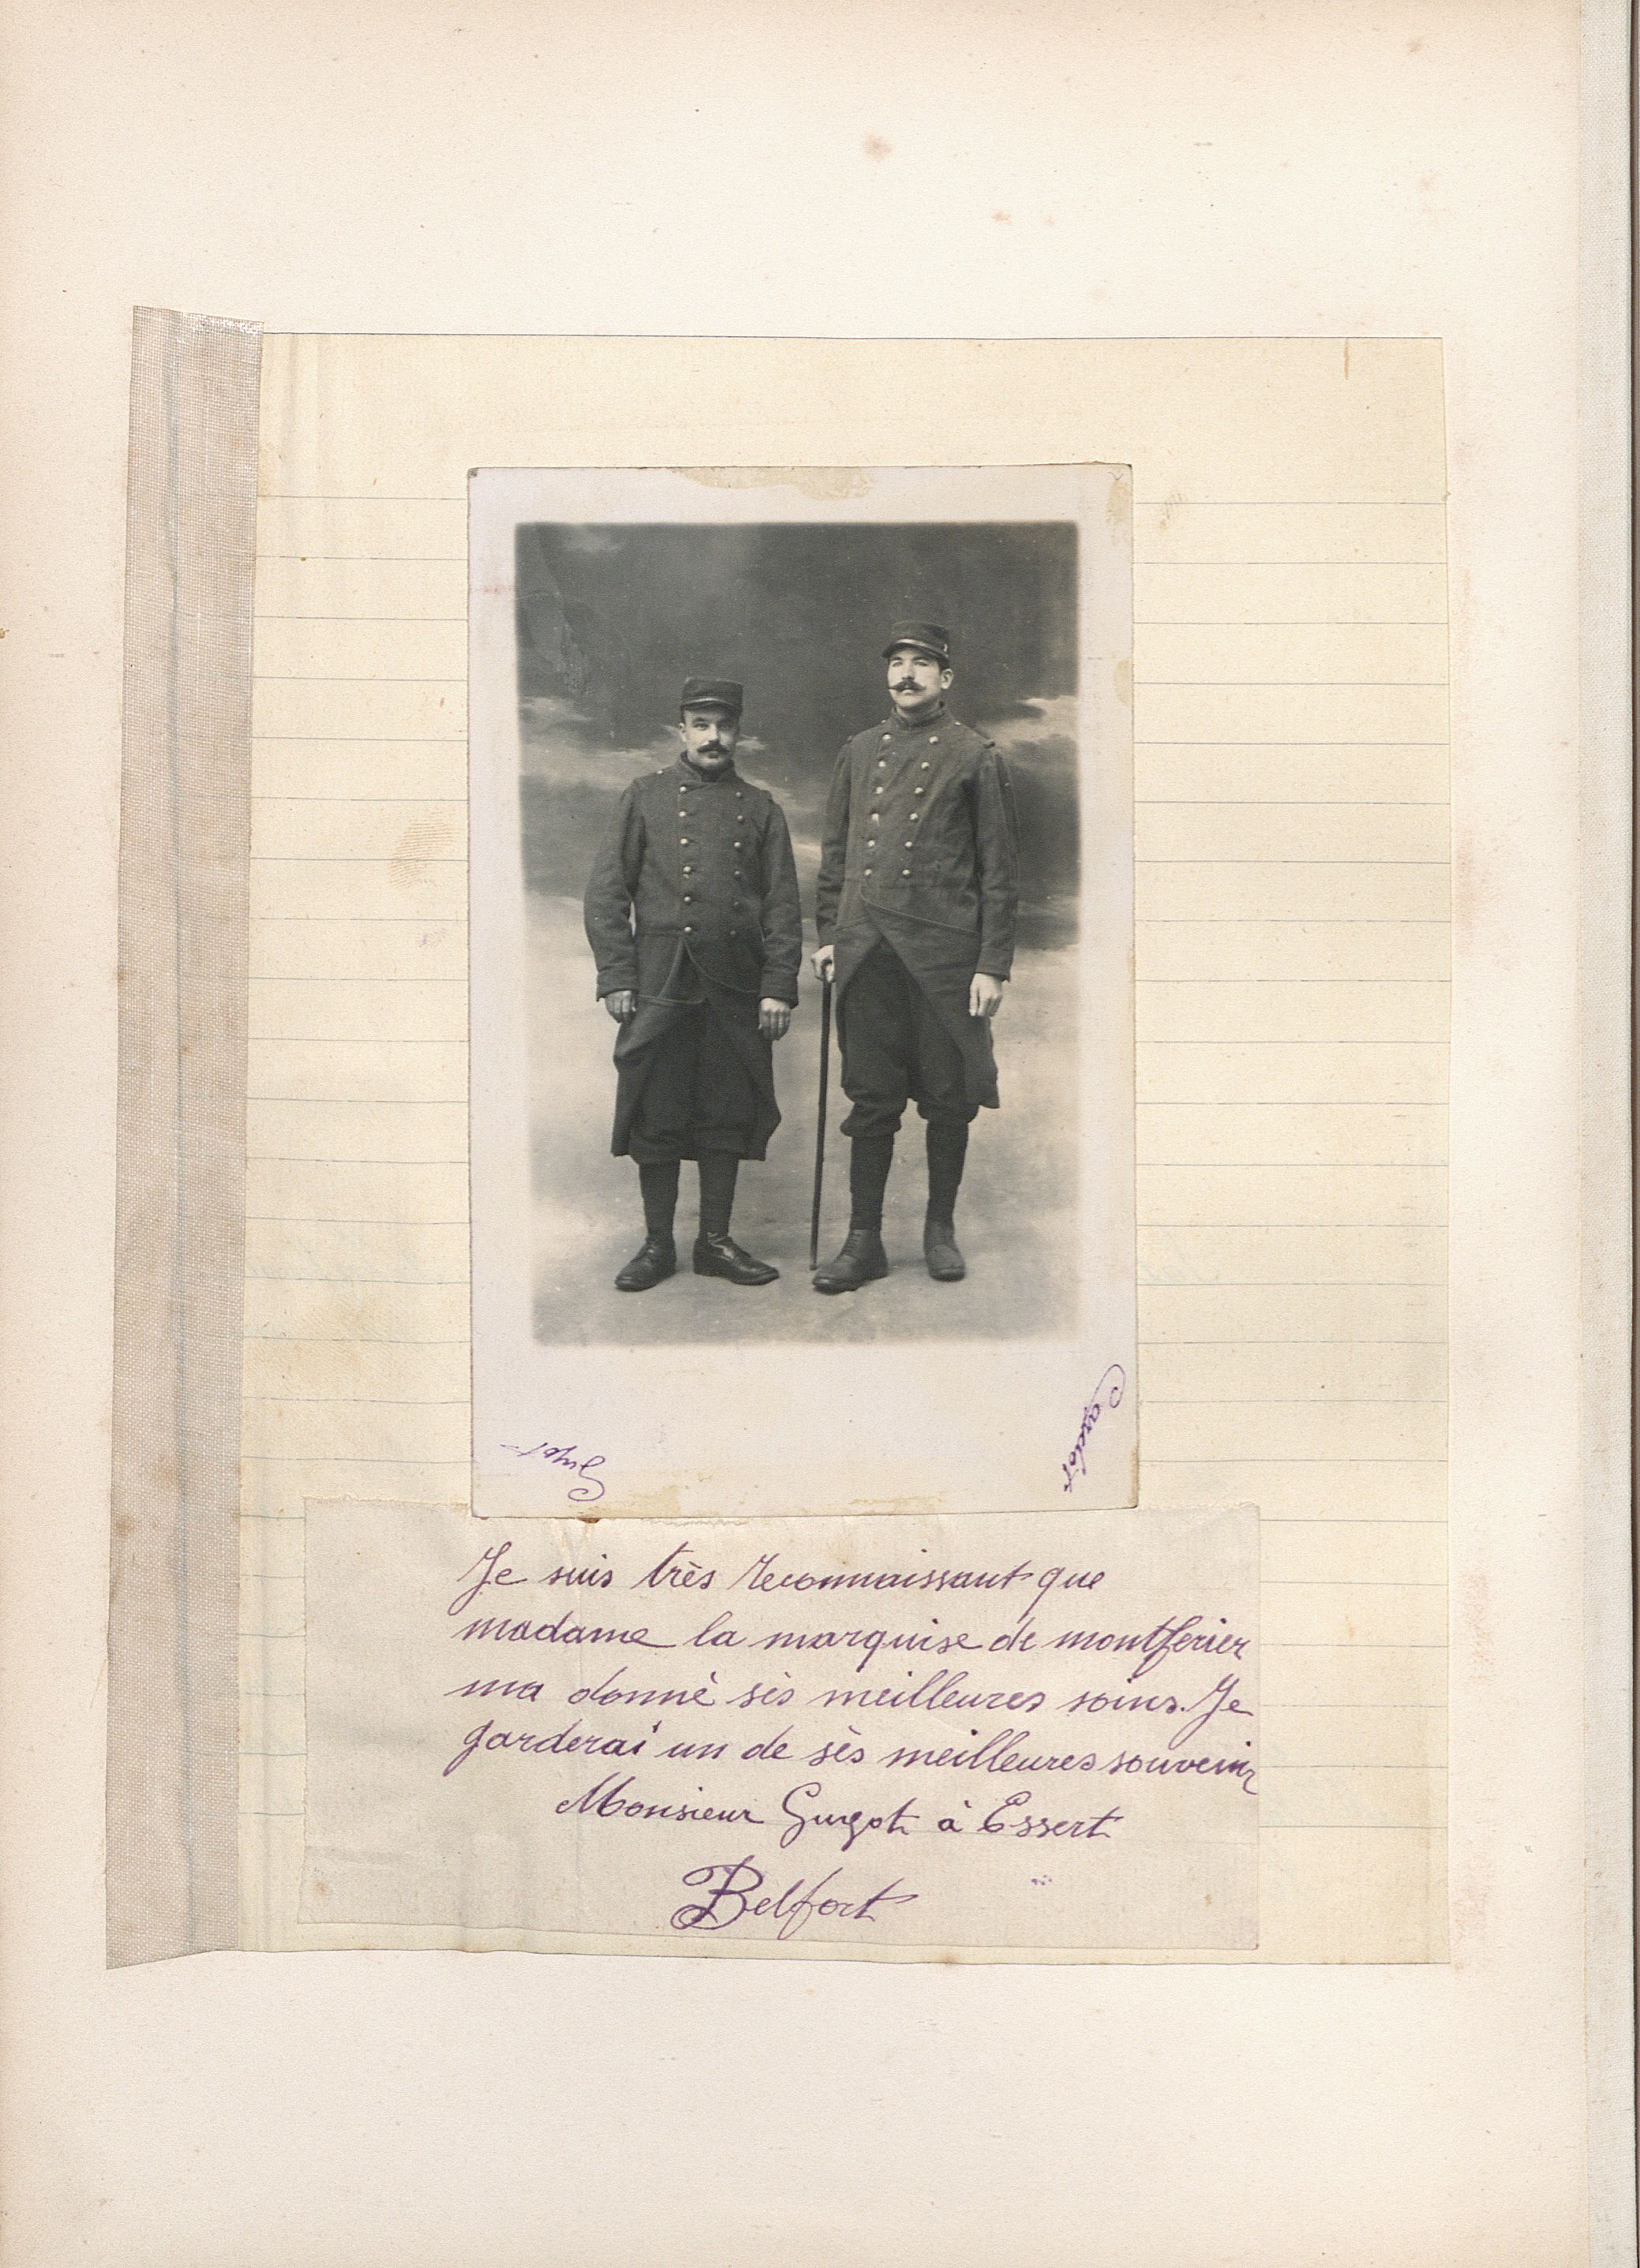 Cardot
Guyot
Je suis très reconnaissant que
madame la marquise de montferier
ma donné sès meilleures soins. Je
garderai un de sès meilleures souvenir
Monsieur Guyot à Essert
Belfort